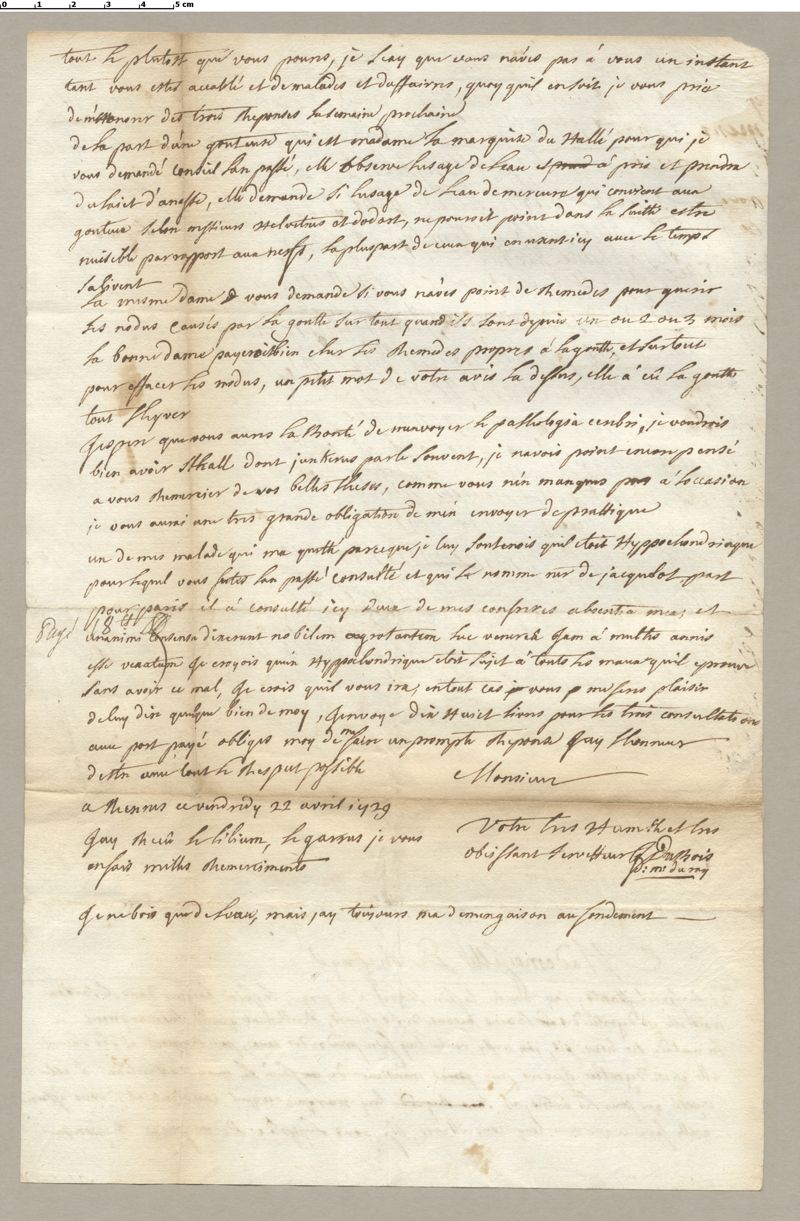 0 1 2 3 4 5 cm
tout le plutost que vous poures, je scay que vous n'avés pas á vous un instant
tant vous estes accablé et de malades et d'affaires, quoy quil en soit je vous prie
de m'honorer des trois Reponses la semaine prochaine
de la part d'une gouteuse qui est madame la marquise du Hallé pour qui je
vous demandé conseil l'an passé, elle observe l'usage de l'eau et á pris et prendra
du laict d'anesse, elle demande si l'usage de l'eau de mercure qui convient aux
gouteux selon messieurs Helvetius et dodart, ne pouroit point dans la suitte estre
nuisible par rapport aux nerfs, la pluspart de ceux qui en usent icy avec le temps
salivent
la mesme dame vous demande si vous n'avés point de Remedes pour guerir
les nodus causés par la goutte sur tout quand ils sont depuis un ou 2 ou 3 mois
la bonne dame payeroit bien cher les Remedes propres á la goutte, et surtout
pour effacer les nodus, un petit mot de votre avis la dessus, elle á eü la goutte
tout l'hyver
J'espere que vous aures la Bonté de m'envoyer le pathologia, je voudrois
bien avoir Sthall dont junkerus parle souvent, je n'avois point encor pensé
a vous Remercier de vos belles theses, comme vous n'en manques pas á l'occasion
je vous aurai une tres grande obligation de m'en envoyer de prattique
un de mes malade qui ma quitté parceque je luy soutenois quil étoit Hyppochondriaque
pour lequel vous futes l'an passé consulté et qui se nomme mr de jacquelot part
pour paris il á consulté icy deux de mes confreres absentia mea; et
Payé 18 tt
unanimi consensu dixerunt nobilem aegrotantem lue venerea jam á multis annis
esse vexatum Je croyois qu'un Hyppochondrique étoit sujet á touts les maux qu'il eprouve
sans avoir ce mal, Je crois quil vous ira; en tout cas vous me feres plaisir
de luy dire quelque bien de moy, J'envoye dix Huict livres pour les trois consultations
avec port payé obligés moy de me faire un prompte Reponse J'ay l'honneur
d'etre avec tout le Respect possible
Monsieur
a Rennes ce vendredy 22 avril 1729
Votre tres Humble et tres
obeissant serviteur Dubois
D. m. du roy
J'ay Receü le lilium, le garus je vous
en fais milles Remerciments
Je ne bois que de l'eau, mais j'ay toujours ma demengaison au fondement